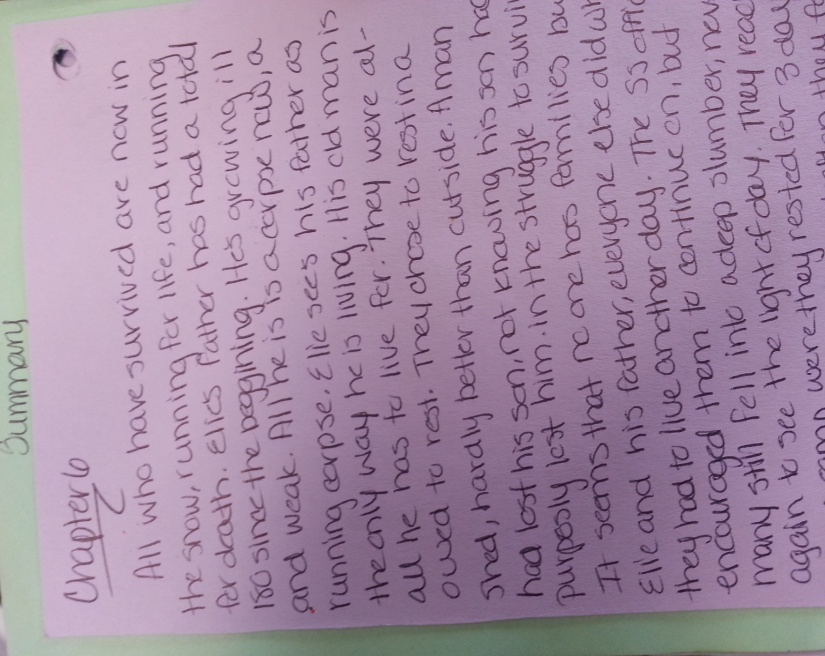 Summary
Chapter 6
All who have survived are now in
the snow, running for life, and running
for death. Elies father has had a total
180 since the beggining. He's growing ill
and weak. All he is is a corpse now, a
running corpse. Elie sees his father as
the only way he is living. His old man is
all he has to live for. They were al-
owed to rest. They chose to rest in a
shed, hardly better than outside. A man
had lost his son, not knowing his son had
purposly lost him in the struggle to
It seems that no one has families
Elie and his father, everyone else did
they had to live another day. The SS
encouraged them to continue on, but
many still fell into a deep slumber,
again to see the light of day. They
were they rested for 3